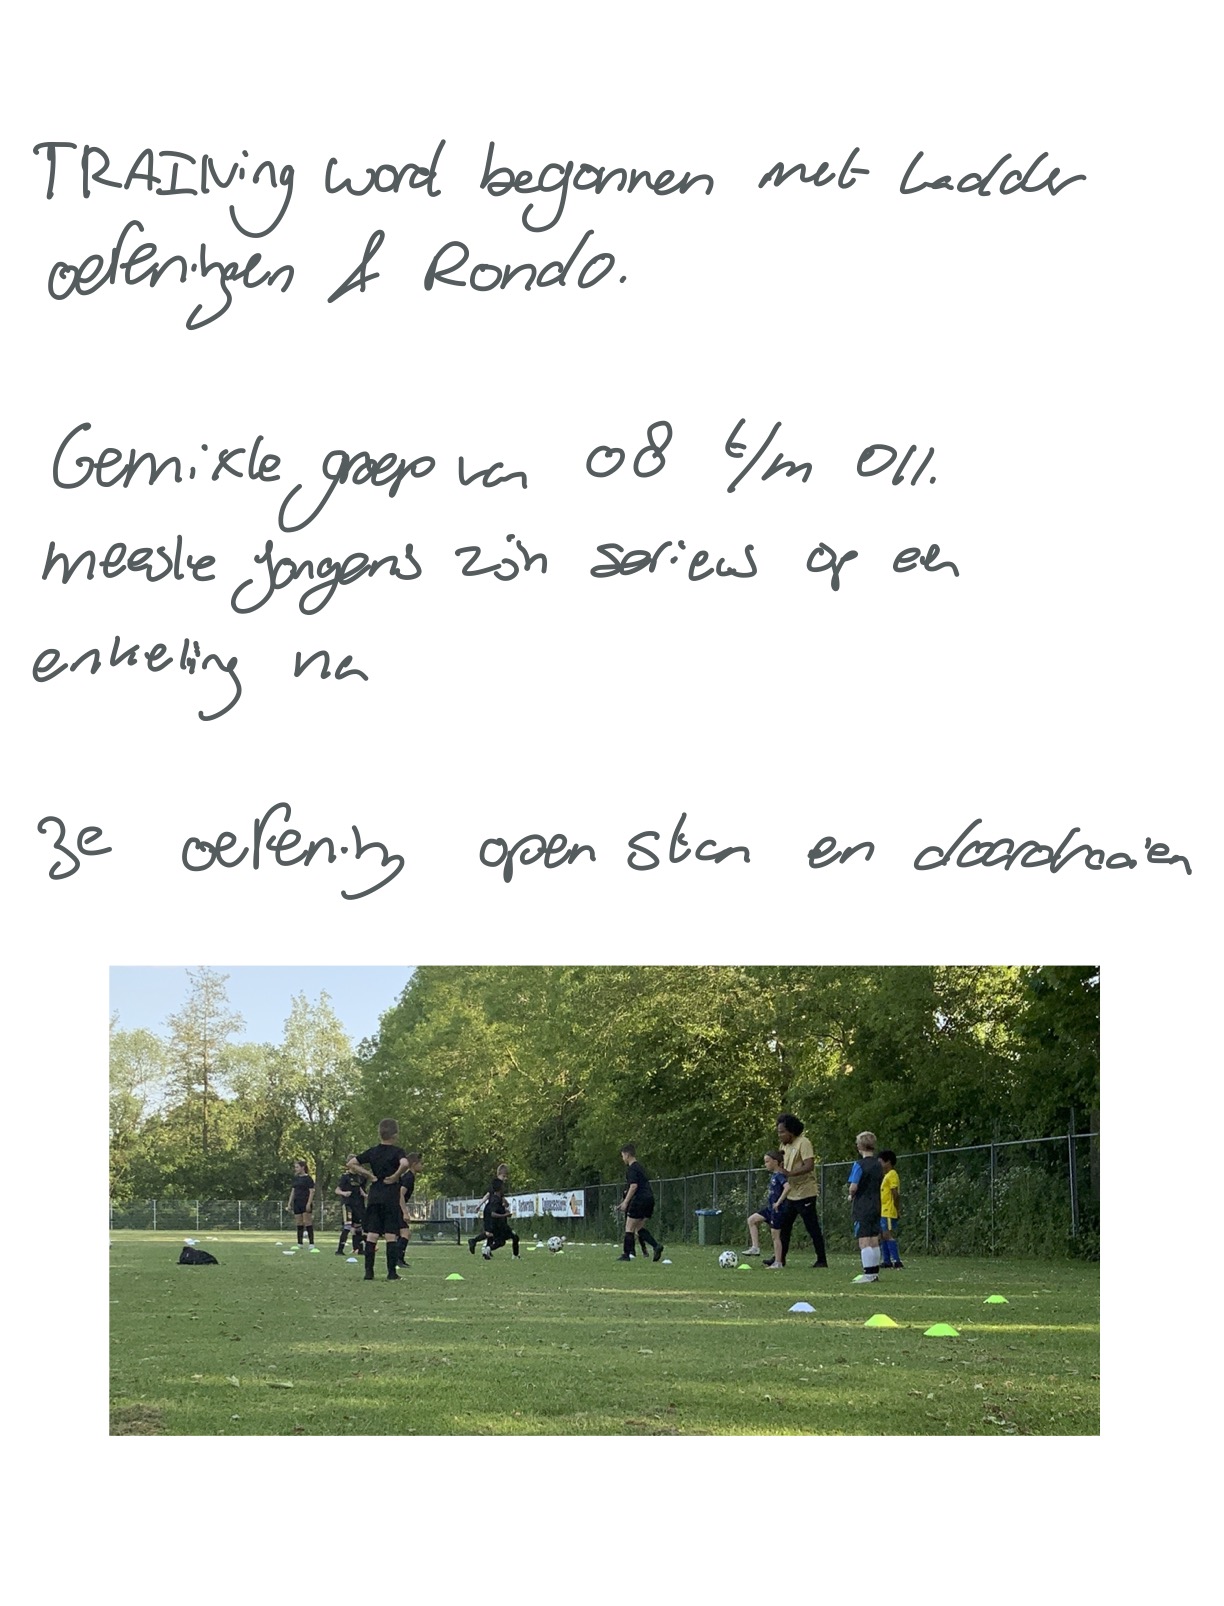 TRAINing word begonnen met Ladder
oefeningen & Rondo.
Gemixte groep van 08 t/m 011.
meeste jongens zijn serieus op een
enkeling na
3e oefening open staan en doordraaien